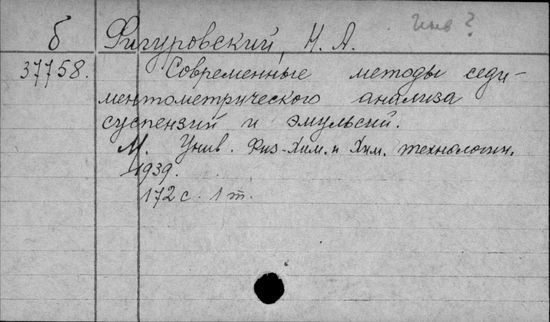 б Фигуровский, Н. А.
37758. Современные методы седи-
ментометрического анализа
суспензий и эмульсий.
М. Унив. Физ-Хим. и Хим. технологии.
1939.
172 с. 1 т.